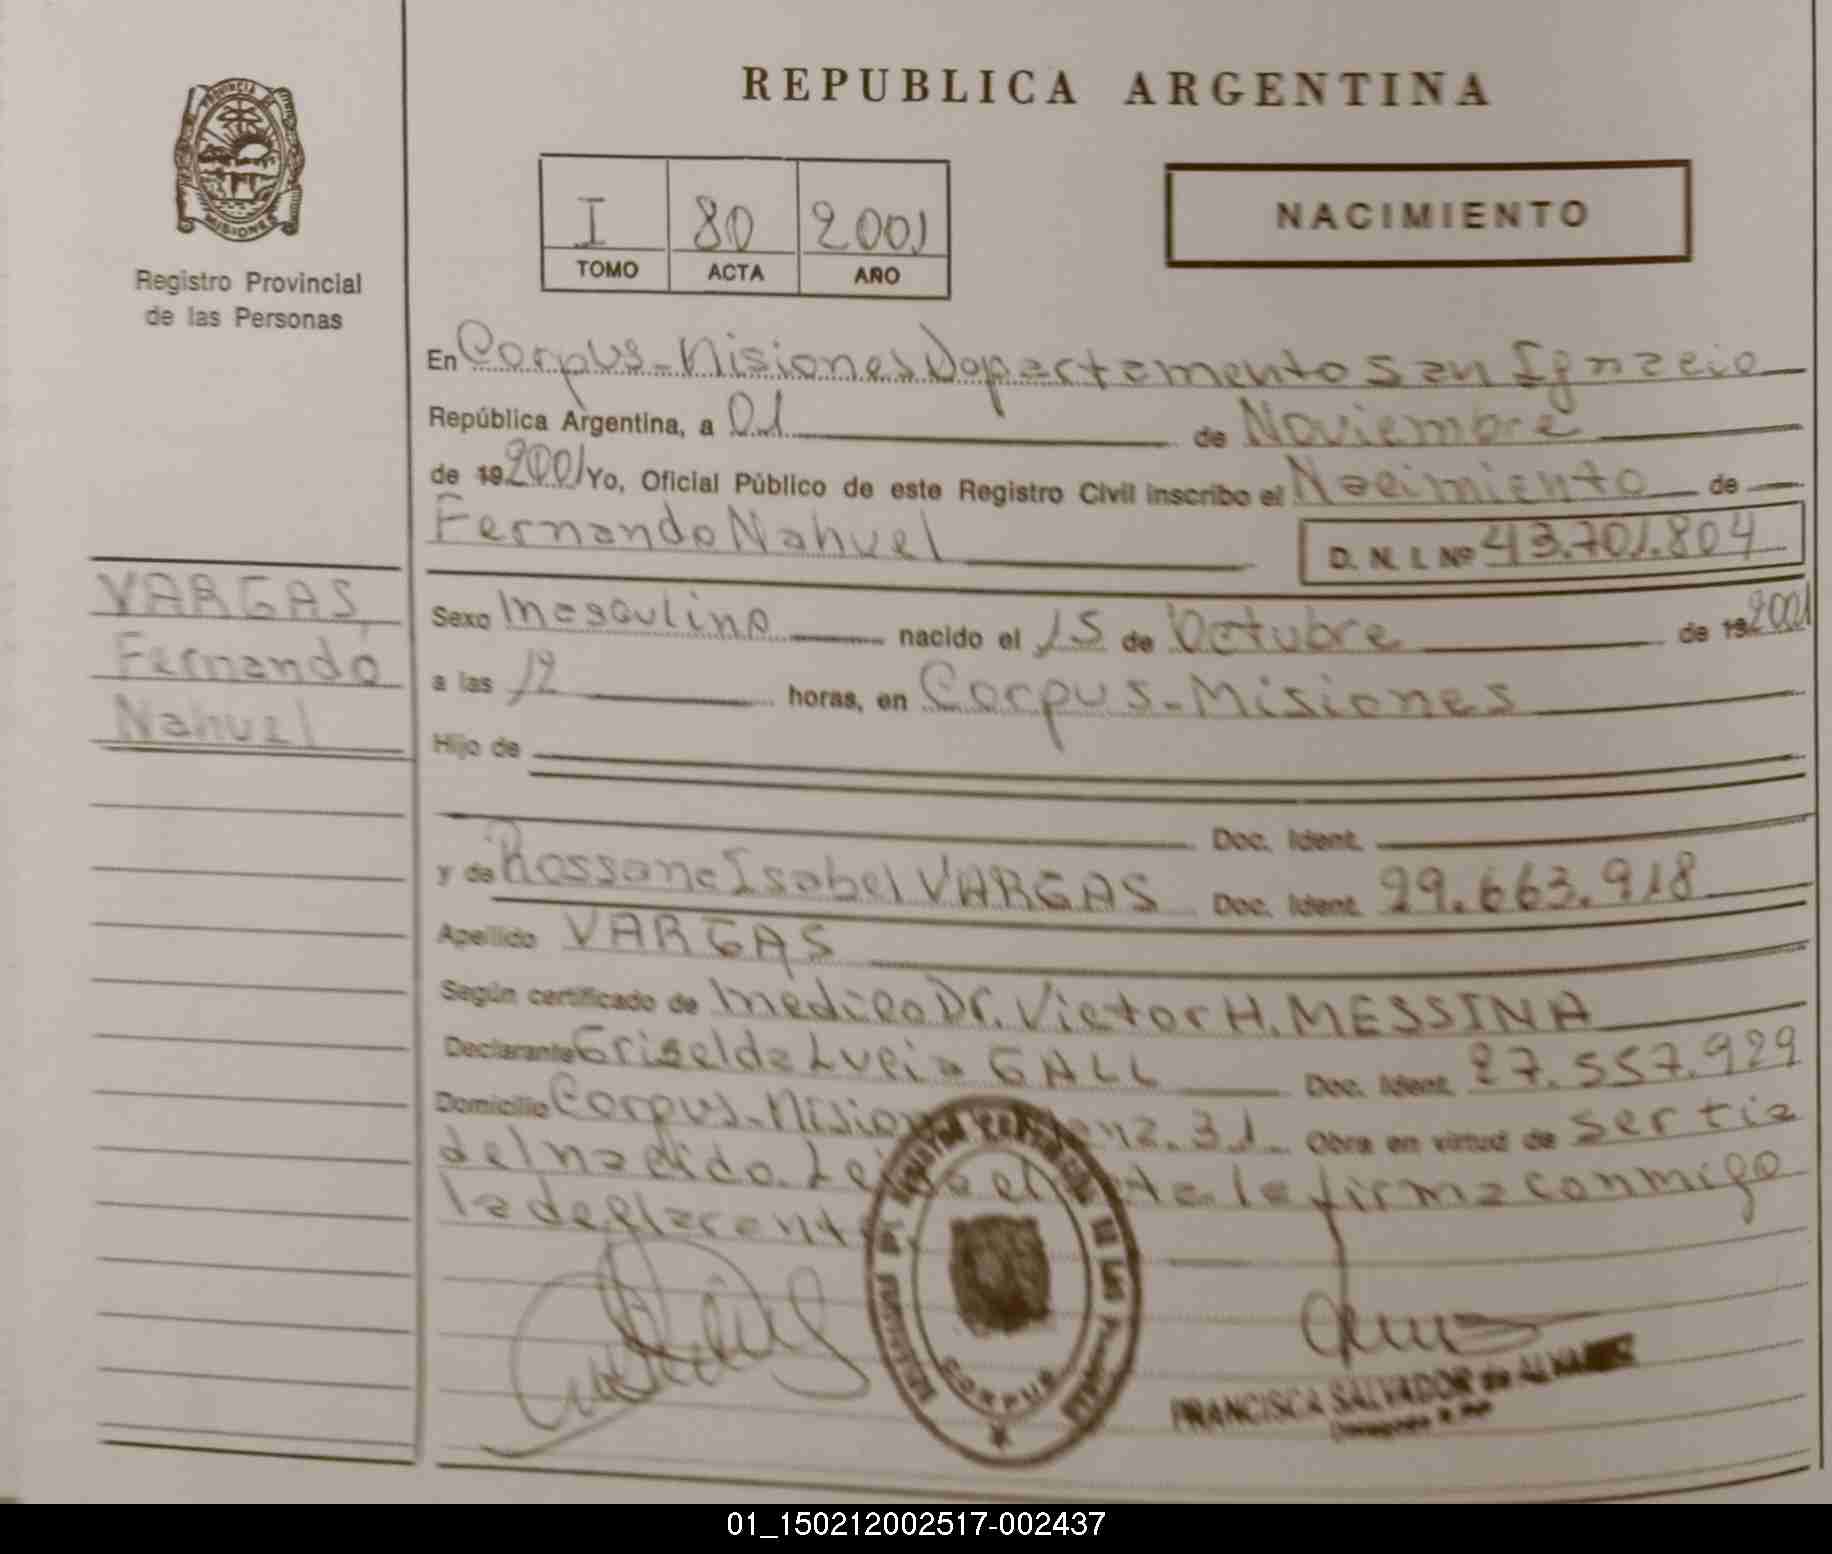 REPUBLICA ARGENTINA
PROVINCIA DE
MISIONES
Registro Provincial
de las Personas
I 80 2001
TOMO ACTA AÑO
NACIMIENTO
En Corpus-Misiones Departamento San Ignacio
República Argentina, a 01 de Noviembre
de 19 2001 Yo, Oficial Público de este Registro Civil inscribo el Nacimiento de
Fernando Nahuel D. N. I. Nº 43.701.804
VARGAS,
Fernando
Nahuel
Sexo Masculino nacido el 15 de Octubre de 19 2001
a las 12 horas, en Corpus-Misiones
Hijo de
Doc. Ident.
y de Rossana Isabel VARGAS Doc. Ident. 29.663.918
Apellido VARGAS
Según certificado de medico Dr. Victor H. MESSINA
Declarante Griselda Lucia GALL Doc. Ident. 27.557.929
Domicilio Corpus-Mision 31 Obra en virtud de ser tia
del nacido. la firma conmigo
la declarante
CORPUS
FRANCISCA SALVADOR de ALVAREZ
01_150212002517-002437